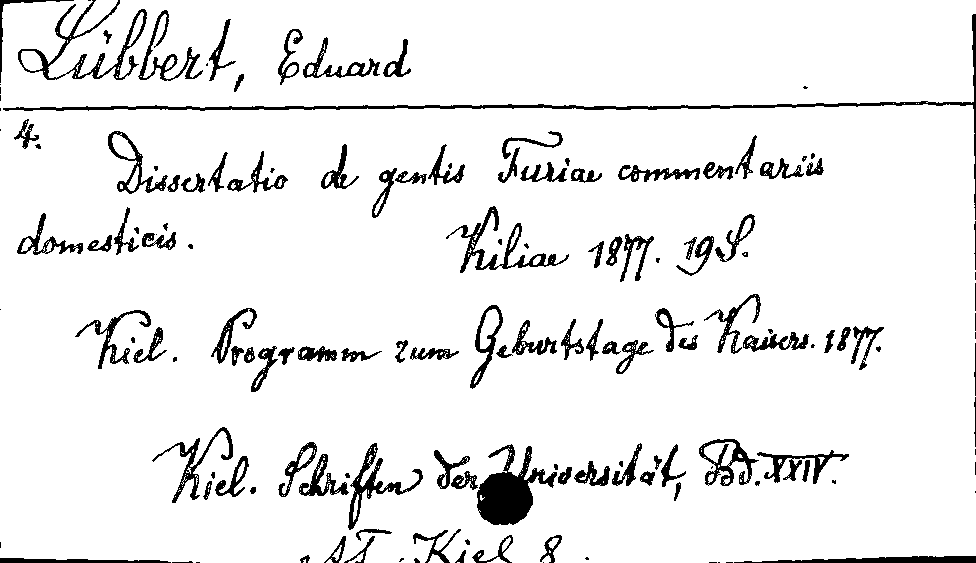 Lübbert, Eduard
4.
Dissertatio de gentis Furiae commentariis
domesticis.
Kiliae 1877. 19 S.
Kiel. Programm zum Geburtstage des Kaisers. 1877.
Kiel. Schriften der Universität, Bd. XXIV.
Kiel 8